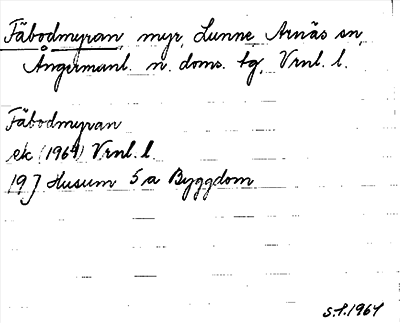 Fäbodmyran, myr, Lunne Arnäs sn,
Ångermanl. n. doms. tg, Vrnl. l.
Fäbodmyran
ek (1964) Vrnl. l.
19 J Husum 5 a Byggdom
S.P. 1964